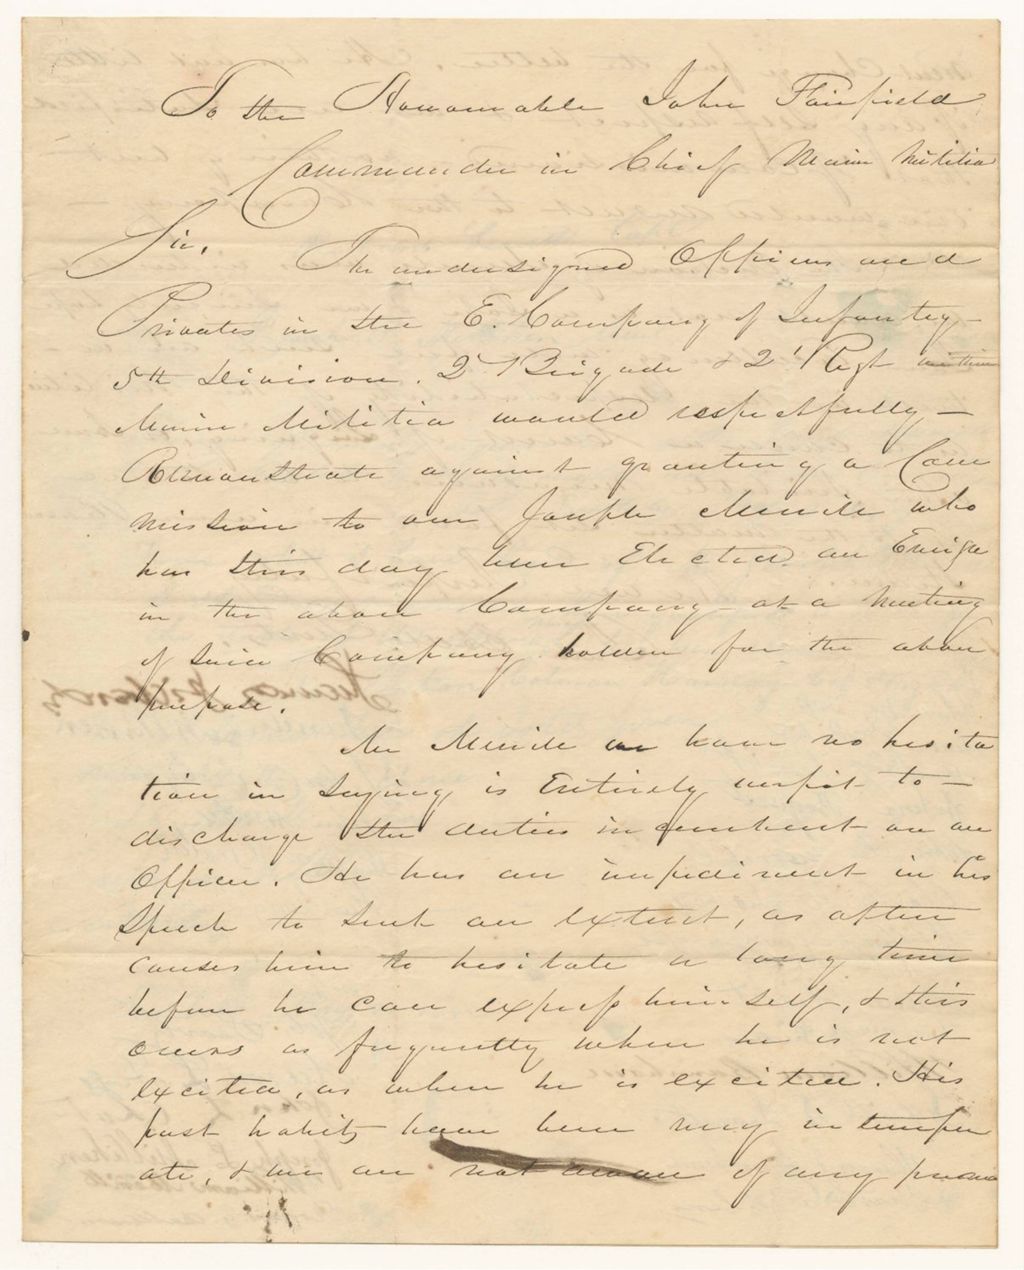 To the Honourable John Fairfield
Commander in Chief Maine Militia
Sir,
The undersigned Officers and
Privates in the E. Company of Infantry
5th Division, 2d Brigade & 2d Regt
Maine Militia would respectfully
Remonstrate against granting a Com
mission to one Joseph who
has this day been Elected an Ensign
in the above Company at a Meeting
of said Company holden for the above
purpose.
Mr we have no hesita
tion in saying is Entirely unfit to
discharge the duties incumbent on an
Officer. He has an impediment in his
Speech to such an extent, as often
causes him to hesitate a long time
before he can express himself, & this
occurs as frequently when he is not
excited, as when he is excited. His
past habits have been very intemper
ate, & we are not aware of any